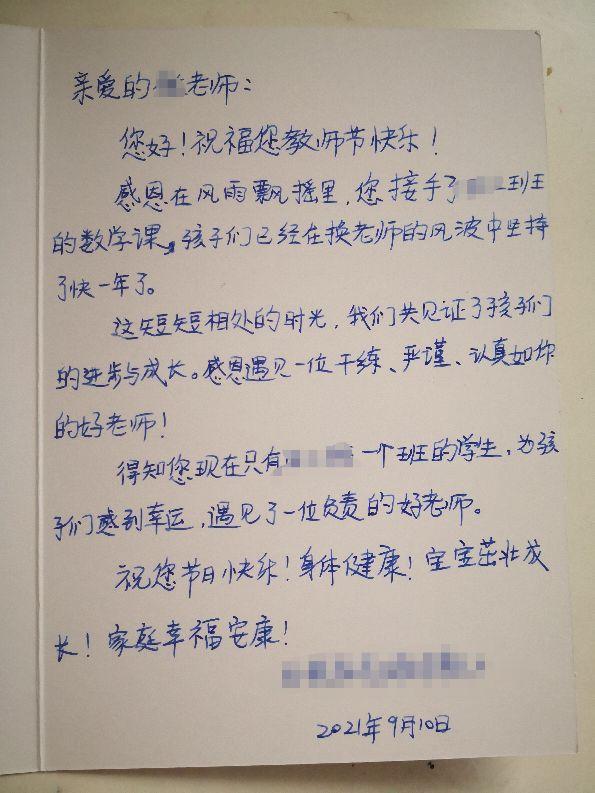 亲爱的老师：
您好！祝福您教师节快乐！
感恩在风雨飘摇里，您接手了班
的数学课，孩子们已经在换老师的风波中坚持
了快一年了。
这短短相处的时光，我们共见证了孩子们
的进步与成长。感恩遇见一位干练、严谨、认真如你
的好老师！
得知您现在只有一个班的学生，为孩
子们感到幸运，遇见了一位负责的好老师。
祝您节日快乐！身体健康！宝宝茁壮成
长！家庭幸福安康！
2021年9月10日